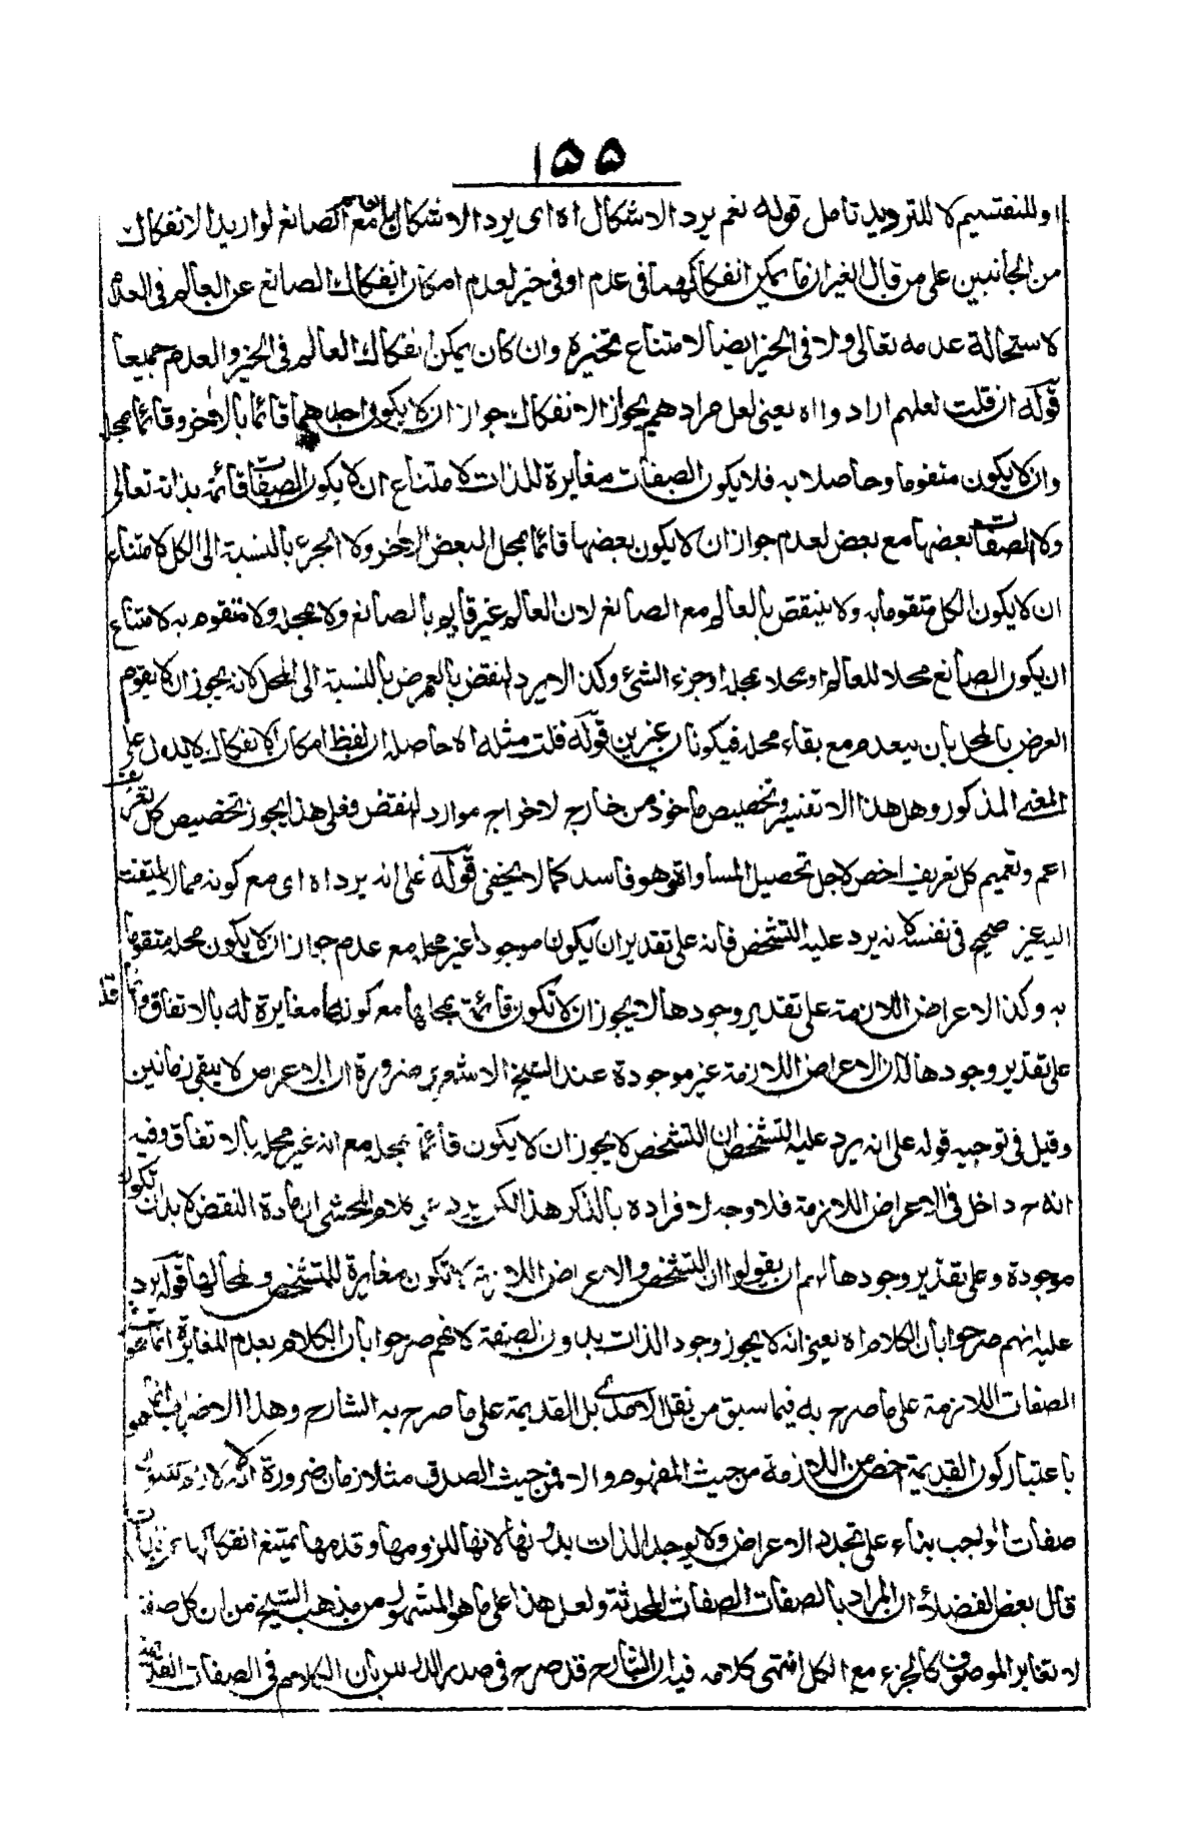 ١٥٥
او للتقسيم لا للترويد تامل قوله نعم يرد الاشكال اه اى يرد الاشكال بالعالم مع الصانع لو اريد الانفكاك
من الجانبين على من قال الغيران ما يمكن انفكاكهما فى عدم او فى حيز لعدم امكان انفكاك الصانع عن العالم فى العدم
لاستحالة عدمه تعالى ولا فى الحيز ايضا لامتناع تحيزه وان كان يمكن انفكاك العالم فى الحيز والعدم جميعا
قوله ان قلت لعلهم ارادوا اه يعنى لعل مرادهم بجواز الانفكاك جواز ان لا يكون احدهما قائما بالاخر وقائما بمحله
وان لا يكون متقوما وحاصلا به فلا يكون الصفات مغايرة للذات لامتناع ان لا يكون الصفات قائمة بذاته تعالى
ولا الصفات بعضها مع بعض لعدم جواز ان لا يكون بعضها قائما بمحل البعض الاخر ولا الجزء بالنسبة الى الكل لامتناع
ان لا يكون الكل متقوما به ولا ينتقض بالعالم مع الصانع لان العالم غير قايم بالصانع ولا بمحله ولا متقوم به لامتناع
ان يكون الصانع محلا للعالم او محلا بمحله او جزء الشئ وكذا لا يرد النقض بالعرض بالنسبة الى المحل لانه يجوز ان لا يقوم
العرض بالمحل بان ينعدم مع بقاء محله فيكونان غيرين قوله قلت مثله اه حاصله ان لفظ امكان الانفكاك لا يدل على
المعنى المذكور وهل هذا الا تفسير وتخصيص ماخوذ من خارج لاخراج موارد النقض فعلى هذا يجوز تخصيص كل تعريف
اعم وتعميم كل تعريف اخص لاجل تحصيل المساواة وهو فاسد كما لا يخفى قوله على انه يرد اه اى مع كونه مما لا يلتفت
اليه غير صحيح فى نفسه لانه يرد عليه التشخص فانه على تقدير ان يكون موجودا غير محله مع عدم جواز ان لا يكون محله متقوما
به وكذا الاعراض اللازمة على تقدير وجودها لا يجوز ان لا تكون قائمة بمحالها مع كونها مغايرة له بالاتفاق وانما قلنا
على تقدير وجودها لان الاعراض اللازمة غير موجودة عند الشيخ الاشعرى ضرورة ان الاعراض لا يبقى زمانين
وقيل فى توجيه قوله على انه يرد عليه التشخص ان التشخص لا يجوز ان لا يكون قائما بمحله مع انه غير محله بالاتفاق وفيه
انه ح داخل فى الاعراض اللازمة فلا وجه لافراده بالذكر هذا لكن يرد على كلام المحشى ان مادة النقض لا بد ان تكون
موجودة وعلى تقدير وجودها لهم ان يقولوا ان التشخص والاعراض اللازمة لا تكون مغايرة للمتشخص ولمحالها قوله يرد
عليه انهم صرحوا بان الكلام اه يعنى انه لا يجوز وجود الذات بدون الصفة لانهم صرحوا بان الكلام بعدم المغايرة انما هو
الصفات اللازمة على ما صرح به فيما سبق من نقل الامدى بل القديمة على ما صرح به الشارح وهذا الاضراب انما هو
باعتبار كون القديمة اخص من اللازمة من حيث المفهوم والا فمن حيث الصدق متلازمان ضرورة انه لا
صفات الواجب بناء على تجدد الاعراض ولا يوجد الذات بدونها لانها للزومها وقدمها يمتنع انفكاكها عن الذات
قال بعض الفضلاء ان المراد بالصفات الصفات المحدثة ولعل هذا على ما هو المشهور من مذهب الشيخ من ان كل صفة
لا تغاير الموصوف كالجزء مع الكل انتهى كلامه فيه ان الشارح قد صرح فى صدر الدرس بان الكلام فى الصفات القديمة